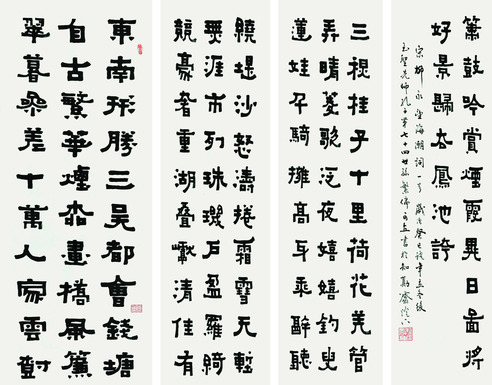 東南形勝三吳都會錢塘
自古繁華煙柳畫橋風簾
翠暮參差十萬人家雲對
繞堤沙怒濤捲霜雪天塹
無涯市列珠璣戶盈羅綺
競豪奢重湖疊巘清佳有
三穐桂子十里荷花羌管
弄晴菱歌泛夜嬉嬉釣叟
蓮娃千騎擁高牙乘醉聽
簫鼓吟賞煙霞異日圖將
好景歸去鳳池誇
宋柳永望海潮詞一首歲在癸巳立冬後
至聖先師孔子第七十四世孫繁書於知勤齋